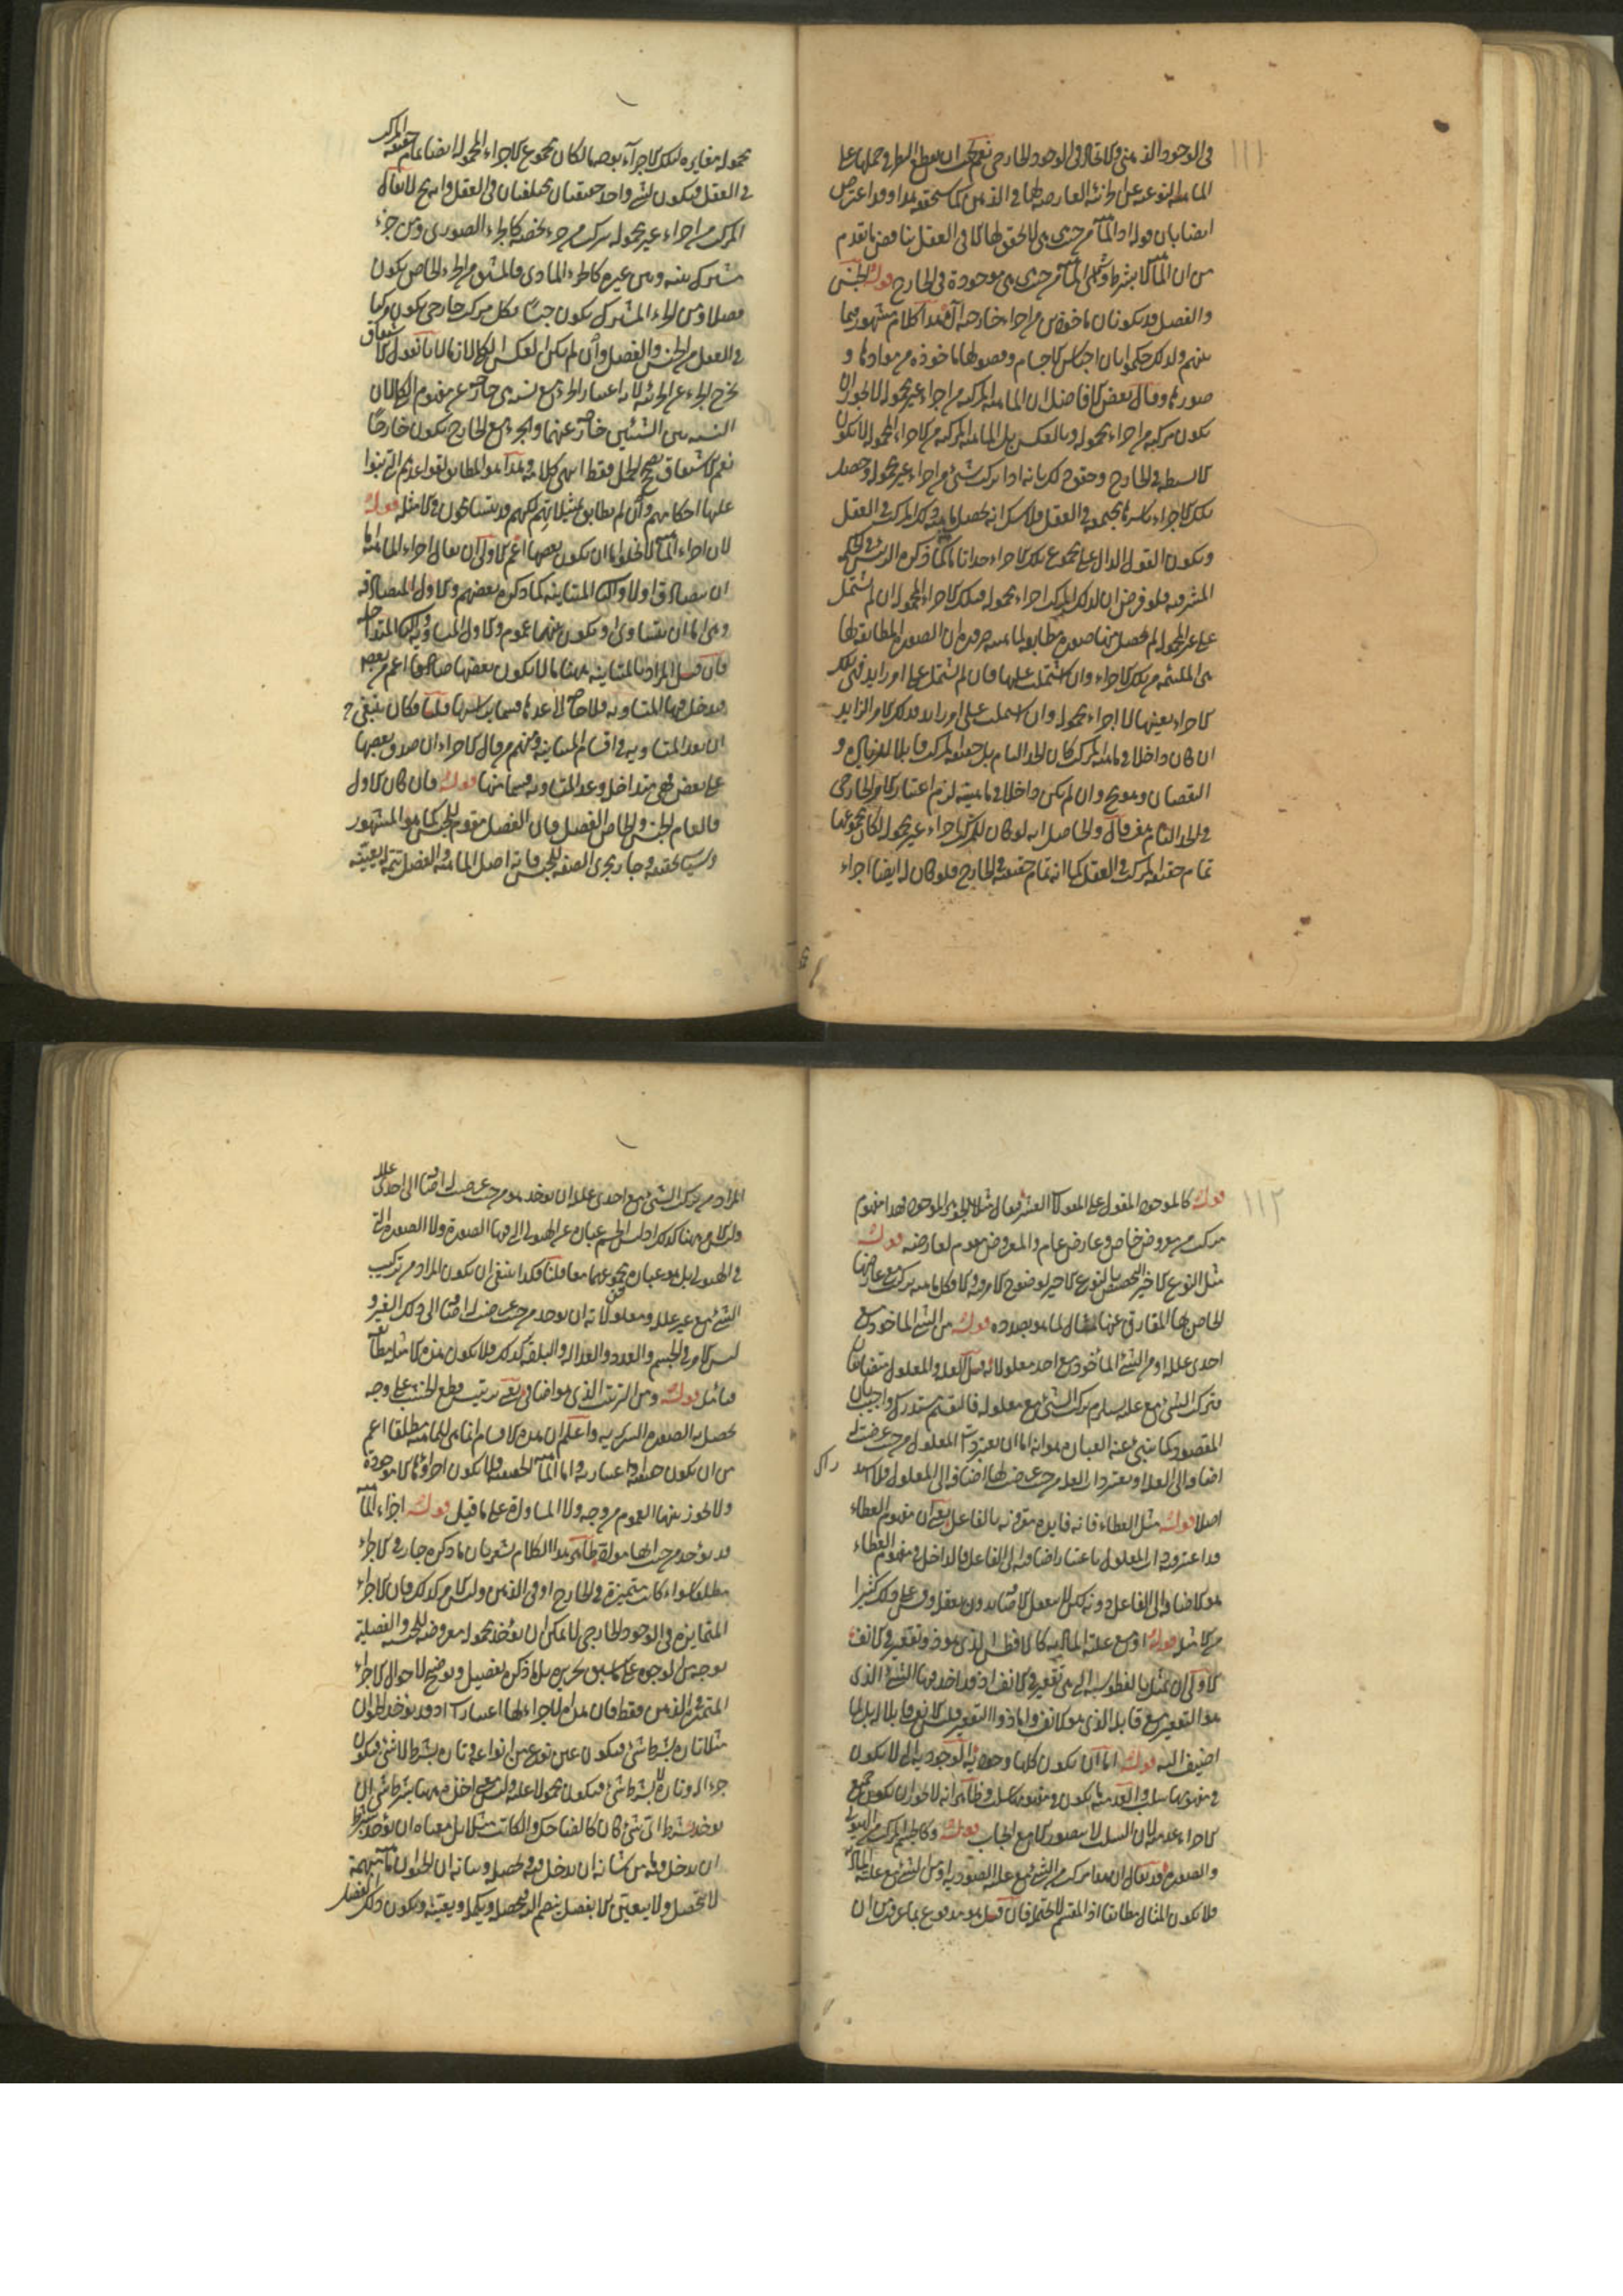 ١١١
في الوجود الذهني والاتحاد في الوجود الخارجي نعم يجب ان
الماهية النوعية عن العارضة لها في الذهن كما ستحققه وقد اعترض
ايضا بان قوله اذ الماهية من حيث هي لا تحقق لها الا في العقل يناقض ما تقدم
من ان الماهية لا بشرط شيء اى الماهية من حيث هي موجودة في الخارج قوله الجنس
والفصل قد يكونان مأخوذين من اجزاء خارجية هذا كلام مشهور فيما
بينهم ولذلك حكموا بان اجناس الاجسام وفصولها مأخوذة من موادها و
صورها وقال بعض الافاضل ان الماهية المركبة من اجزاء غير محمولة لا يجوز ان
يكون مركبة من اجزاء محمولة وبالعكس بل الماهية المركبة من الاجزاء المحمولة لا يكون
الا بسيطة في الخارج وحقق ذلك بانه اذا تركب شيء من اجزاء غير محمولة وحصل
تلك الاجزاء باسرها مجتمعة في العقل فلا شك انه يحصل ماهية ذلك المركب في العقل
ويكون القول الدال على مجموع تلك الاجزاء حدا تاما كما ذكره الرئيس في الحكمة
المشرقية فلو فرض ان لذلك المركب اجزاء محمولة فتلك الاجزاء المحمولة ان لم تشتمل
على غير المحمولة لم يحصل منها صورة مطابقة لماهيته ضرورة ان الصورة المطابقة لها
هي الملتئمة من تلك الاجزاء وان اشتملت عليها فان لم تشتمل على امر زايد فهي تلك
الاجزاء بعينها لا اجزاء محمولة وان اشتملت على امر زايد فذلك الامر الزايد
ان كان داخلا في ماهية المركب كان الحد التام بل حقيقة المركب قابلا للزيادة و
النقصان وهو مح وان لم يكن داخلا في ماهيته لزم اعتبار الامر الخارجي
في الحد التام ثم قال والحاصل انه لو كان للمركب اجزاء غير محمولة لكان مجموعها
تمام حقيقة المركب في العقل كما انه تمام حقيقته في الخارج فلو كان له ايضا اجزاء
محمولة مغايرة لتلك الاجزاء بعضها لكان مجموع الاجزاء المحمولة ايضا تمام حقيقة المركب
في العقل فيكون لشيء واحد حقيقتان مختلفتان في العقل وانه مح لا يقال
المركب من اجزاء غير محمولة مركب من جزء يخصه كالجزء الصوري ومن جزء
مشترك بينه وبين غيره كالجزء المادى فالمشتق من الجزء الخاص يكون
فصلا ومن الجزء المشترك يكون جنسا فكل مركب خارجى يكون مركبا
في العقل من الجنس والفصل وان لم يكن العكس كليا لازما لانا نقول الاشتقاق
يخرج الجزء عن الجزئية لانه اعتبار الجزء مع نسبة هي خارجة عن مفهوم الجزء لان
النسبة بين الشيئين خارجة عنهما والجزء مع الخارج يكون خارجا
نعم الاشتقاق يصحح الحمل فقط انتهى كلامه وهذا هو المطابق لقواعدهم التي بنوا
عليها احكامهم وان لم يطابق تمثيلاتهم لكنهم قد يتسامحون في الامثلة قوله
لان اجزاء الماهية لا يخلو اما ان يكون بعضها اعم الاولى ان يقال اجزاء الماهية اما
ان يتصادق اولا والثانى المتباينة كما ذكره بعضهم والاول المتصادقة
وهي اما ان يتساوى او يكون بينهما عموم والاول المتساوية والثانى المتداخلة
فان قيل المراد بالمتباينة ههنا ما لا يكون بعضها صادقا اعم من بعض
فدخل فيها المتساوية فلا حاجة الى عدها قسما برأسها قلنا فكان ينبغي ح
ان يعد المتساوية في اقسام المتباينة ومنهم من قال الاجزاء ان صدق بعضها
على بعض فهي متداخلة وعد المتساوية قسما منها قوله فان كان الاول
فالعام الجنس والخاص الفصل فان الفصل مقوم للجنس كما هو المشهور
وسيأتى تحقيقه وجار مجرى الصفة للجنس فانه اصل الماهية والفصل تتمة يعينه
١١٢
قوله كالموجود المقول على المقولات العشر يقال مثلا الجوهر الموجود فهذا مفهوم
مركب من معروض خاص وعارض عام والمعروض مقوم لعارضه قوله
مثل النوع الاخير المتخصص بالنوع الاخير لوضوح الامر فيه والا فكل ماهية تركب مع عارضها
الخاص بها المفارق عنها مثال لما هو بصدده قوله من الشيء المأخوذ مع
احدى علله او من الشيء المأخوذ مع احد معلولاته قيل العلة والمعلول متضايفان
فتركب الشيء مع علته يستلزم تركب الشيء مع معلوله فالتقسيم مستدرك واجيب بان
المقصود كما ينبيء عنه العبارة هو انه اما ان يعتبر ذات المعلول من حيث عرضت لها
اضافة الى العلة او يعتبر ذات العلة من حيث عرضت لها اضافة الى المعلول فلا استدراك
اصلا قوله مثل العطاء فانه فايدة مقرونة بالفاعل يعنى ان مفهوم العطاء
قد اعتبر فيه ذات المعلول باعتبار اضافته الى الفاعل فالداخل في مفهوم العطاء
هو الاضافة الى الفاعل دونه لكن لا يعقل الاضافة بدون تعقله وقس على ذلك كثيرا
من الامثلة قوله او مع علته المادية كالافطس الذى هو ذو تقعير في الانف
الاولى ان يمثل بالفطوسة التي هي تقعير في الانف اذ قد اخذ فيها الشيء الذى
هو التقعير مع قابله الذى هو الانف واما ذو التقعير فليس الانف قابلا له بل لما
اضيف اليه قوله اما ان يكون كلها وجودية الوجودية التي لا يكون
في مفهومها سلب والعدمية ما يكون في مفهومه سلب وظاهر انه لا يجوز ان يكون جميع
الاجزاء عدمية لان السلب لا يتصور الا مع ايجاب قوله وكالجسم المركب من الهيولى
والصورة قد يقال ان هذا مركب من الشيء مع علته الصورية او من الشيء مع علته المادية
فلا يكون المثال مطابقا اذ المقسم لا يحتمله فان قيل هو مدفوع بما عرفت من ان
المراد من تركب الشيء مع احدى علله ان يوخذ هو من حيث عرضت له اضافة الى احدى علله
وليس الامر ههنا كذلك اذ ليس الجسم عبارة عن الهيولى التي فيها الصورة ولا الصورة التي
في الهيولى بل هو عبارة عن مجموعهما معا قلنا فكذا ينبغى ان يكون المراد من تركيب
الشيء مع غير علله ومعلولاته ان يوخذ من حيث عرضت له اضافة الى ذلك الغير و
ليس الامر في الجسم والعدد والعدالة والبلقة كذلك فلا يكون هذه الامثلة مطابقة
فتأمل قوله ومن الترتيب الذى هو اضافي يعنى ترتيب قطع الخشب على وجه
تحصل به الصورة السريرية واعلم ان هذه الاقسام انما هي للماهية مطلقا اعم
من ان يكون حقيقية او اعتبارية واما الماهية الحقيقية فلا يكون اجزاؤها الا موجودة
ولا يجوز بينها العموم من وجه ولا المساواة على ما قيل قوله اجزاء الماهية
قد يوخذ من حيث انها مواد ظاهر هذا الكلام يشعر بان ما ذكره جار في الاجزاء
مطلقا سواء كانت متميزة في الخارج او في الذهن وليس الامر كذلك فان الاجزاء
المتمايزة في الوجود الخارجي لا يمكن ان يوخذ محمولة معروضة للجنسية والفصلية
بوجه من الوجوه على ما سبق تحريره بل ما ذكره تفصيل وتوضيح لاحوال الاجزاء
المتمايزة في الذهن فقط فان هذه الاجزاء لها اعتبارات اذ قد يوخذ الحيوان
مثلا تارة بشرط شيء فيكون عين نوع من انواعه وتارة بشرط لا شيء فيكون
جزءا له وتارة لا بشرط شيء فيكون محمولا عليه وليس معنى اخذه ههنا بشرط شيء ان
يوخذ بشرط اى شيء كان كالضاحك والكاتب مثلا بل معناه ان يوخذ بشرط
ان يدخل فيه ما من شانه ان يدخل فيه ويحصله وبيانه ان الحيوان ماهية مبهمة
لا تتحصل ولا يتعين الا بفصل ينضم اليه فيحصله ويكمله ويعينه ويكون ذلك الفصل